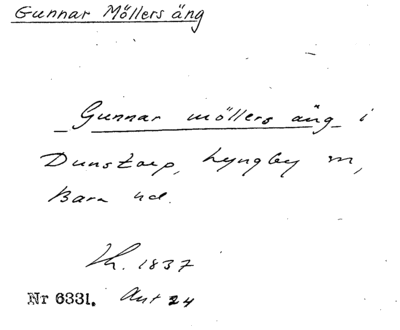 Gunnar Möllers äng
Gunnar möllers äng i
Dunstorp, Lyngby sn,
Bara hd.
Lh. 1837
Nr 6331. Akt 24